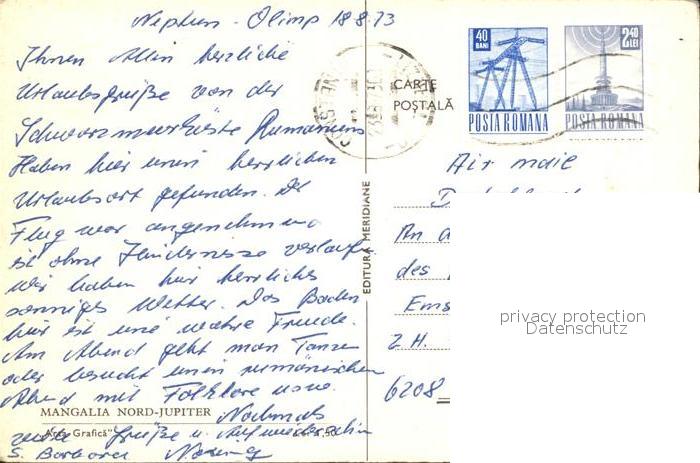 Neptun - Olimp 18.8.73
Ihnen Allen herzliche
Urlaubsgrüße von der
Schwarzmeerküste Rumäniens
Haben hier einen herrlichen
Urlaubsort gefunden. Der
Flug war angenehm und
ist ohne Hindernisse verlaufen
Wir haben hier herrliches
sonniges Wetter. Das Baden
hier ist eine wahre Freude.
Am Abend geht man Tanzen
oder besucht einen rumänischen
Abend mit Folklore usw.
MANGALIA NORD-JUPITER
Nochmals
Grüße u. Aufwiedersehn
"Arta Grafică"
S. Barbara
EDITURA MERIDIANE
CARTE
POŞTALĂ
40
BANI
POSTA ROMANA
2,40
LEI
POSTA ROMANA
Air maie
An
des
Ems
z.H.
6208
privacy protection
Datenschutz